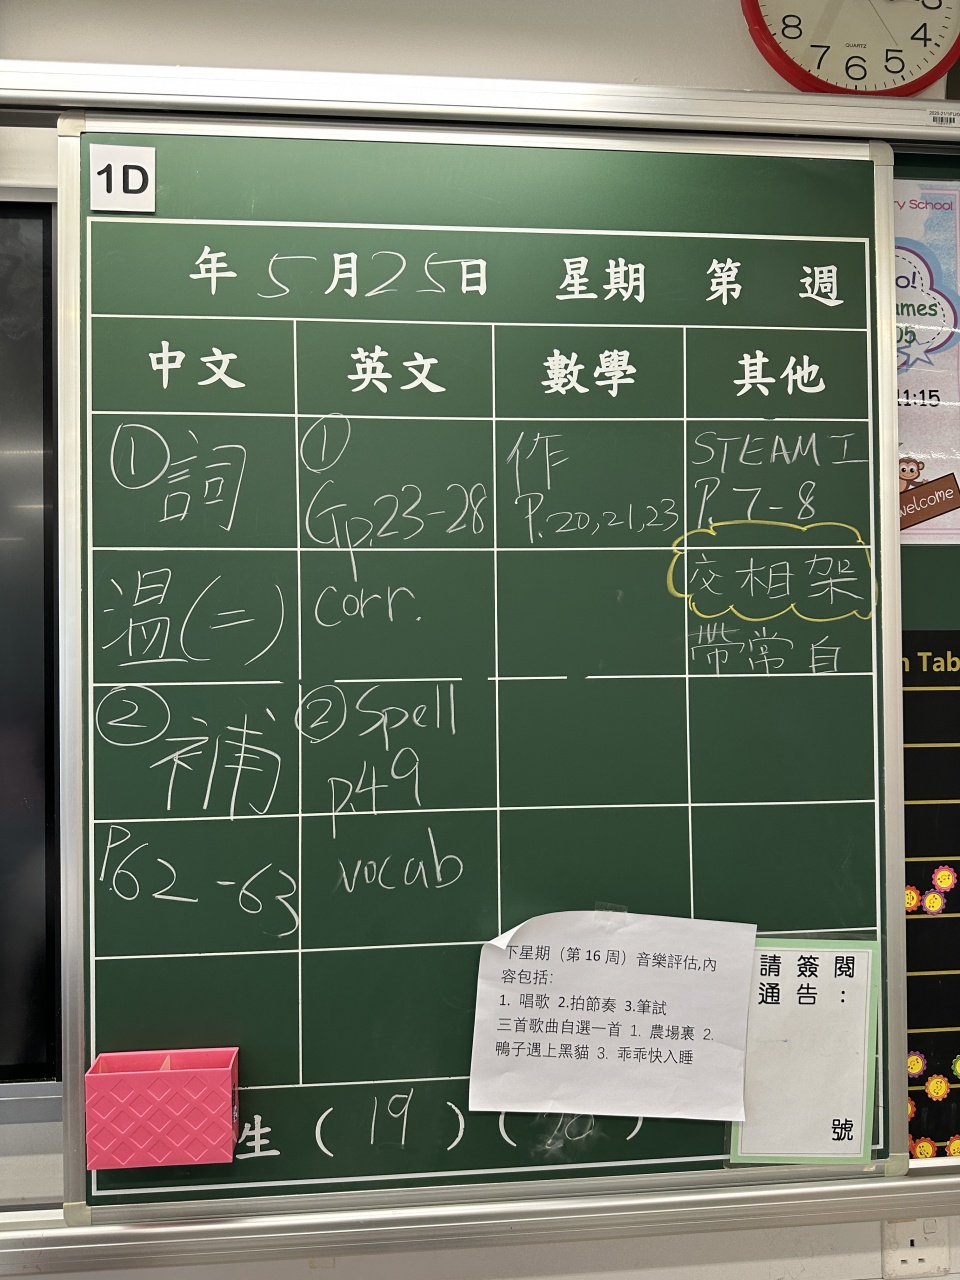 8 7 6 5 4
QUARTZ
1D
ry School
o!
ames
05
11:15
welcome
n Tab
年 5 月 25 日 星期 第 週
中文 英文 數學 其他
① 詞
溫(二)
② 補
P.62-63
①
Gp.23-28
corr.
② Spell
p.49
vocab
作
P.20,21,23
STEAM工
P.7-8
交相架
帶常自
下星期（第 16 周）音樂評估,內
容包括:
1. 唱歌 2.拍節奏 3.筆試
三首歌曲自選一首 1. 農場裏 2.
鴨子遇上黑貓 3. 乖乖快入睡
請簽閱
通告：
號
生 ( 19 ) ( )